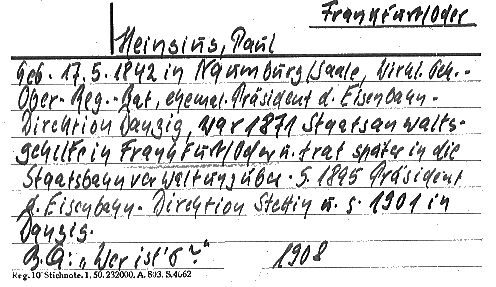 Frankfurt/Oder
Heinsius, Paul
Geb. 17.5.1842 in Naumburg/Saale, Wirkl. Geh.-
Ober-Reg.-Rat, ehemal. Präsident d. Eisenbahn-
Direktion Danzig, war 1871 Staatsanwalts-
gehilfe in Frankfurt/Oder u. trat später in die
Staatsbahnverwaltung über. S. 1895 Präsident
d. Eisenbahn-Direktion Stettin u. s. 1901 in
Danzig.
B.A: „Wer ist's?" 1908
Reg. 10 Stichnote. 1. 50. 232000. A. 803. S. 4662